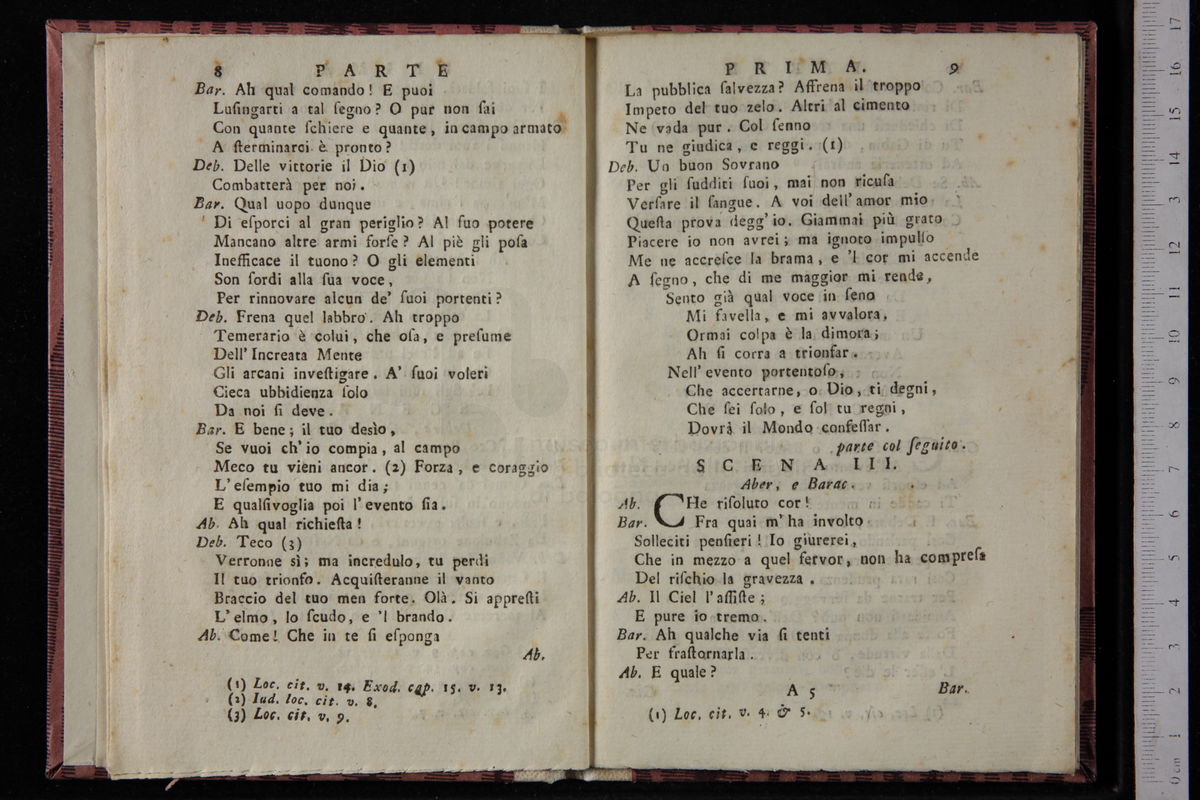 8 PARTE
Bar. Ah qual comando! E puoi
Luſingarti a tal ſegno? O pur non ſai
Con quante ſchiere e quante, in campo armato
A ſterminarci è pronto?
Deb. Delle vittorie il Dio (1)
Combatterà per noi.
Bar. Qual uopo dunque
Di eſporci al gran periglio? Al ſuo potere
Mancano altre armi forſe? Al piè gli poſa
Inefficace il tuono? O gli elementi
Son ſordi alla ſua voce,
Per rinnovare alcun de' ſuoi portenti?
Deb. Frena quel labbro. Ah troppo
Temerario è colui, che oſa, e preſume
Dell' Increata Mente
Gli arcani inveſtigare. A' ſuoi voleri
Cieca ubbidienza ſolo
Da noi ſi deve.
Bar. E bene; il tuo desìo,
Se vuoi ch' io compia, al campo
Meco tu vieni ancor. (2) Forza, e coraggio
L' eſempio tuo mi dia;
E qualſivoglia poi l' evento ſia.
Ab. Ah qual richieſta!
Deb. Teco (3)
Verronne sì; ma incredulo, tu perdi
Il tuo trionfo. Acquiſteranne il vanto
Braccio del tuo men forte. Olà. Si appreſti
L' elmo, lo ſcudo, e 'l brando.
Ab. Come! Che in te ſi eſponga
Ab.
(1) Loc. cit. v. 14. Exod. cap. 15. v. 13.
(2) Iud. loc. cit. v. 8.
(3) Loc. cit. v. 9.
PRIMA. 9
La pubblica ſalvezza? Affrena il troppo
Impeto del tuo zelo. Altri al cimento
Ne vada pur. Col ſenno
Tu ne giudica, e reggi. (1)
Deb. Un buon Sovrano
Per gli ſudditi ſuoi, mai non ricuſa
Verſare il ſangue. A voi dell' amor mio
Queſta prova degg' io. Giammai più grato
Piacere io non avrei; ma ignoto impulſo
Me ne accreſce la brama, e 'l cor mi accende
A ſegno, che di me maggior mi rende,
Sento già qual voce in ſeno
Mi favella, e mi avvalora,
Ormai colpa è la dimora;
Ah ſi corra a trionfar.
Nell' evento portentoſo,
Che accertarne, o Dio, ti degni,
Che ſei ſolo, e ſol tu regni,
Dovrà il Mondo confeſſar.
parte col ſeguito.
SCENA III.
Aber, e Barac.
Ab. CHe riſoluto cor!
Bar. Fra quai m' ha involto
Solleciti penſieri! Io giurerei,
Che in mezzo a quel fervor, non ha compreſa
Del riſchio la gravezza.
Ab. Il Ciel l' aſſiſte;
E pure io tremo.
Bar. Ah qualche via ſi tenti
Per fraſtornarla.
Ab. E quale?
A 5 Bar.
(1) Loc. cit. v. 4. & 5.
0 cm 1 2 3 4 5 6 7 8 9 10 11 12 13 14 15 16 17